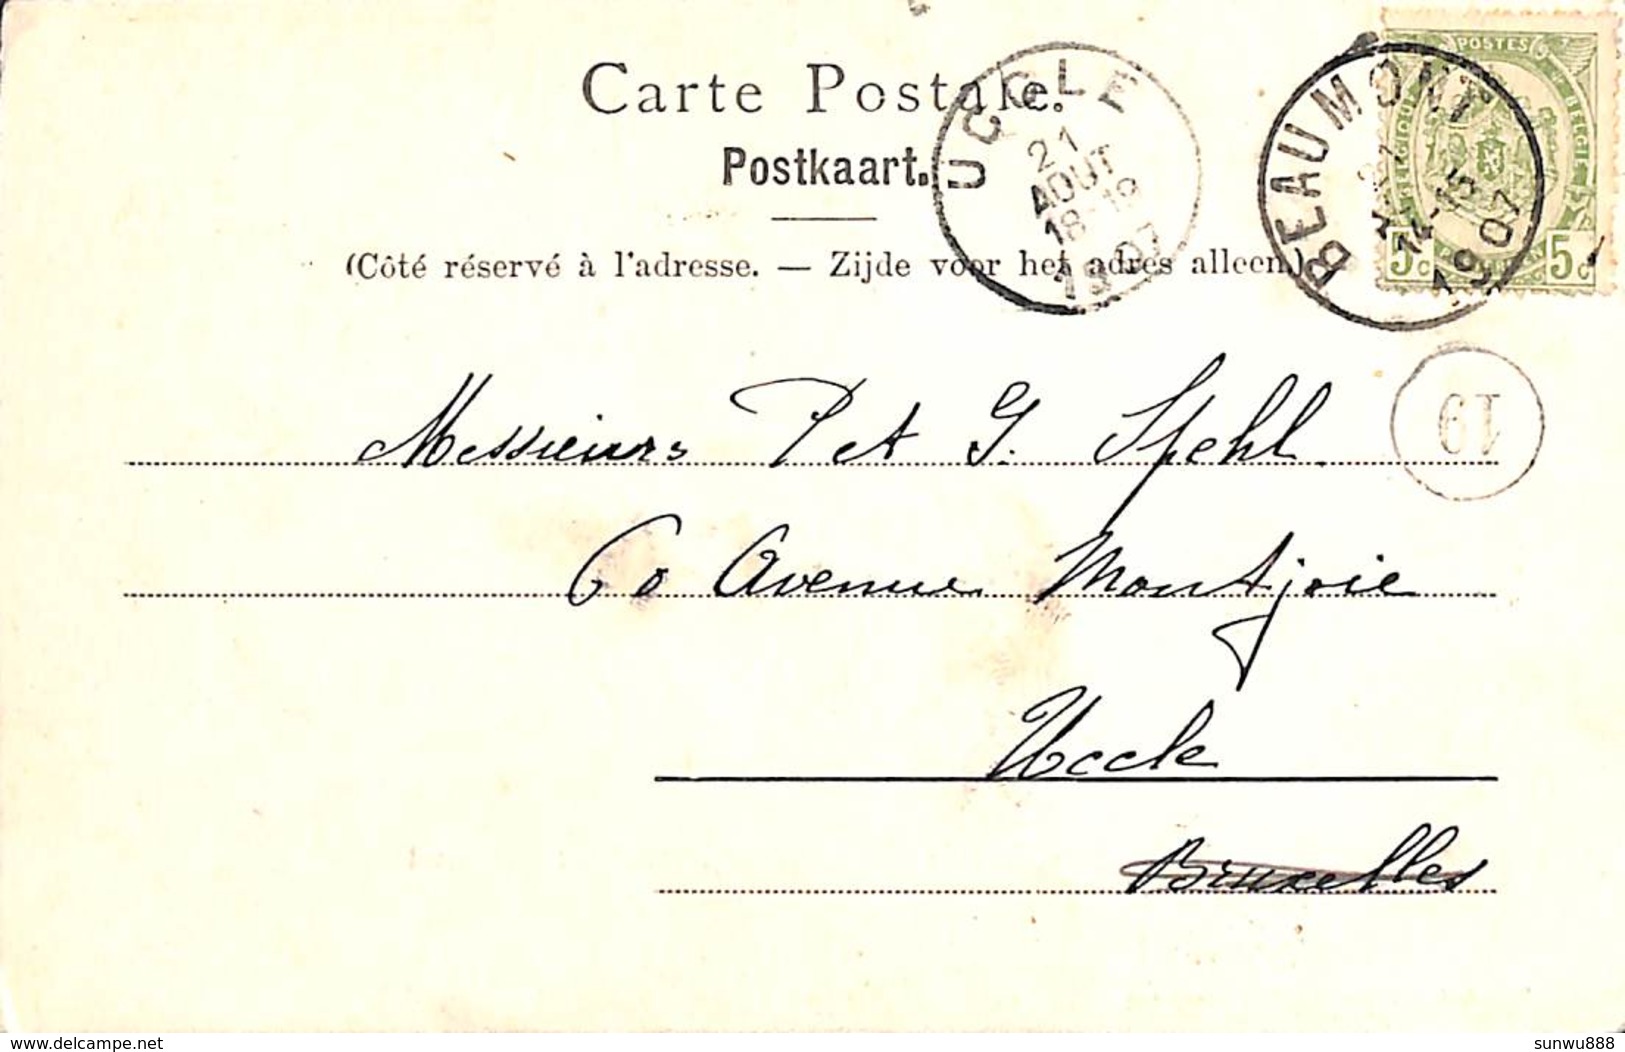 Carte Postale.
Postkaart.
(Côté réservé à l'adresse. — Zijde voor het adres alleen.)
UCCLE
21
AOUT
18-19
1907
BEAUMONT
21
14-15
1907
POSTES
5c 5c
19
Messieurs P et G. Spehl
60 Avenue Montjoie
Uccle
Bruxelles
www.delcampe.net
sunwu888